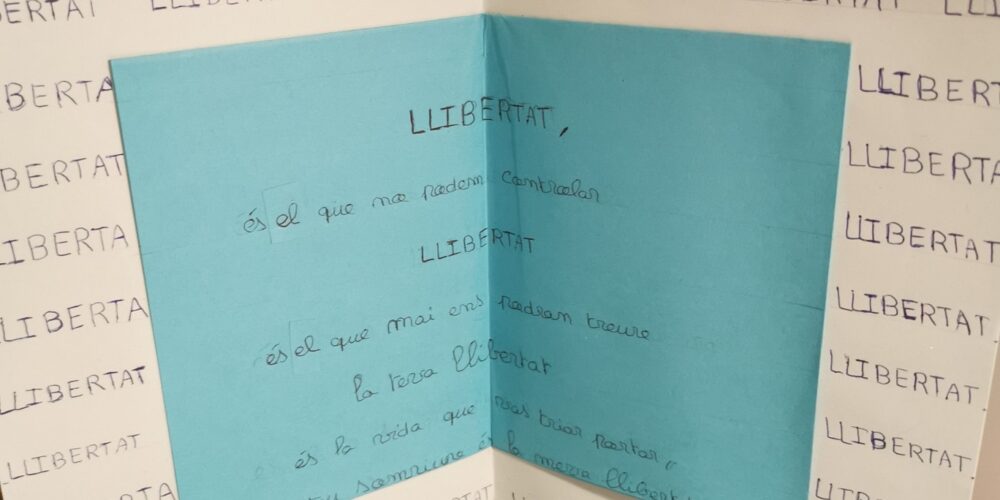 ERTAT
LLIBERTAT
TAT
LLI
BERTA
BERTAT
LIBERTA
LLIBERTA
LLIBERTAT
LLIBERTAT
BERTA
LLIBERTAT,
és el que no podem controlar
LLIBERTAT
és el que mai ens podran treure
la teva llibertat
és la vida que vas triar portar,
tu somriure és la meva llibert
LLIBERT
LLIBERTA
LLIBERTAT
LLIBERTAT
LLIBERTAT
LLIBERTAT